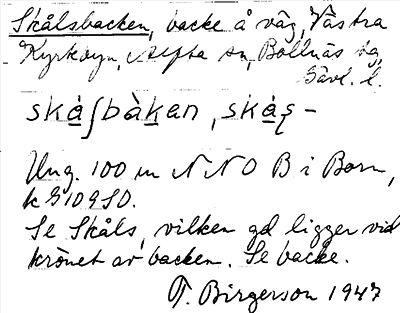 Skålsbacken, backe å väg, Västra
Kyrkbyn, Alfta sn, Bollnäs sg,
Gävl. l.
skå̀ʃbàkan, skå̀ş-
Ung. 100 m NNO B i Born,
k S109SO.
Se Skåls, vilken gd ligger vid
krönet av backen. Se backe.
T. Birgerson 1947